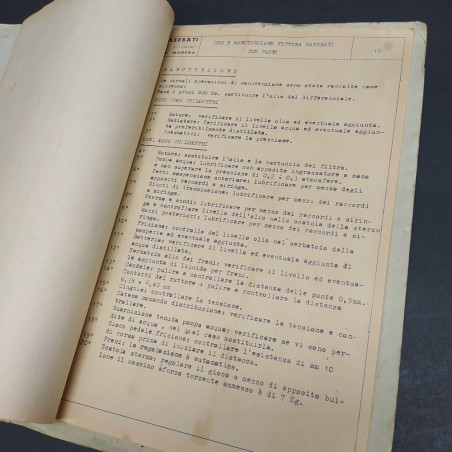 MASERATI
MODENA
USO E MANUTENZIONE VETTURA MASERATI
DUE POSTI
19
MANUTENZIONE
Le normali operazioni di manutenzione sono state raccolte come
appresso:
Dopo i primi 500 Km. sostituire l'olio del differenziale.
OGNI 1000 CHILOMETRI
Motore: verificare il livello olio ed eventuale aggiunta.
Radiatore: Verificare il livello acqua ed eventuale aggiun-
ta preferibilmente distillata.
Pneumatici: verificare la pressione.
OGNI 4000 CHILOMETRI
Motore: sostituire l'olio e la cartuccia del filtro.
Pompa acqua: lubrificare con apposito ingrassatore a mano
e non superare la pressione di 0,2 ÷ 0,3 atmosfere.
Perni sospensione anteriore: lubrificare per mezzo degli
appositi raccordi a siringa.
Giunti di trasmissione: lubrificare per mezzo dei raccordi
a siringa.
Sterzo e snodi: lubrificare per mezzo dei raccordi a sirin-
ga e controllare livello dell'olio nella scatola dello sterzo
Mozzi posteriori: lubrificare per mezzo dei raccordi a si-
ringa.
Frizione: controllo del livello olio nel serbatoio della
pompetta ed eventuale aggiunta.
Batteria: verificare il livello ed eventuale aggiunta di
acqua distillata.
Serbatoio olio dei freni: verificare il livello ed eventua-
le aggiunta di liquido per freni.
Candele: pulire e controllare la distanza delle punte 0,5mm.
Contatti del ruttore: pulire e controllare la distanza
0,35 ÷ 0,40 mm
Cinghie: controllare la tensione.
Catena comando distribuzione: verificare la tensione e con-
trollare.
Guarnizione tenuta pompa acqua: verificare se vi sono per-
dite di acqua, nel qual caso sostituirla.
Gioco pedale frizione: controllare l'esistenza di mm 10
di corsa prima di iniziare il distacco.
19° Freni: la regolazione è automatica.
20° Scatola sterzo: regolare il gioco a mezzo di apposito bul-
lone il massimo sforzo torcente ammesso è di 7 Kg.